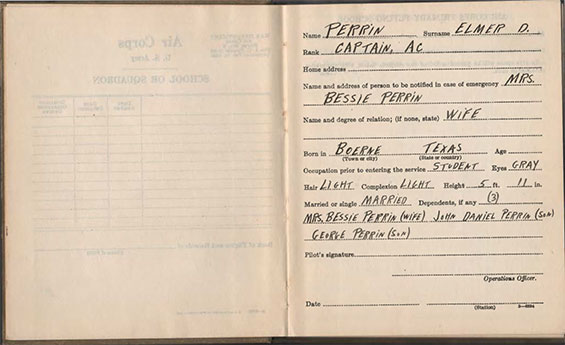 Name PERRIN Surname ELMER D.
Rank CAPTAIN, AC
Home address
Name and address of person to be notified in case of emergency MRS.
BESSIE PERRIN
Name and degree of relation; (if none, state) WIFE
Born in BOERNE TEXAS Age
(Town or city) (State or country)
Occupation prior to entering the service STUDENT Eyes GRAY
Hair LIGHT Complexion LIGHT Height 5 ft. 11 in.
Married or single MARRIED Dependents, if any (3)
MRS. BESSIE PERRIN (WIFE) JOHN DANIEL PERRIN (SON)
GEORGE PERRIN (SON)
Pilot's signature
Operations Officer.
Date
(Station)
Air Corps
U. S. Army
SCHOOL OR SQUADRON